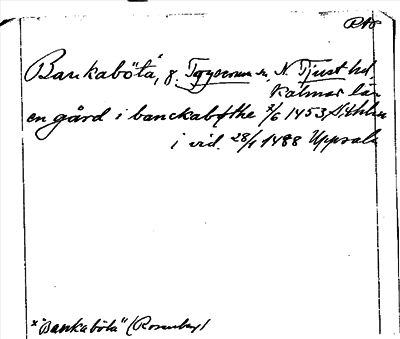 RAP
Bankaböta,* g. Tryserum sn, N. Tjust hd
Kalmar län
en gård i banckabøthe 7/6 1453 Sthlm
i vid. 28/1 1488 Uppsala
x "Bankaböta" (Rosenberg)